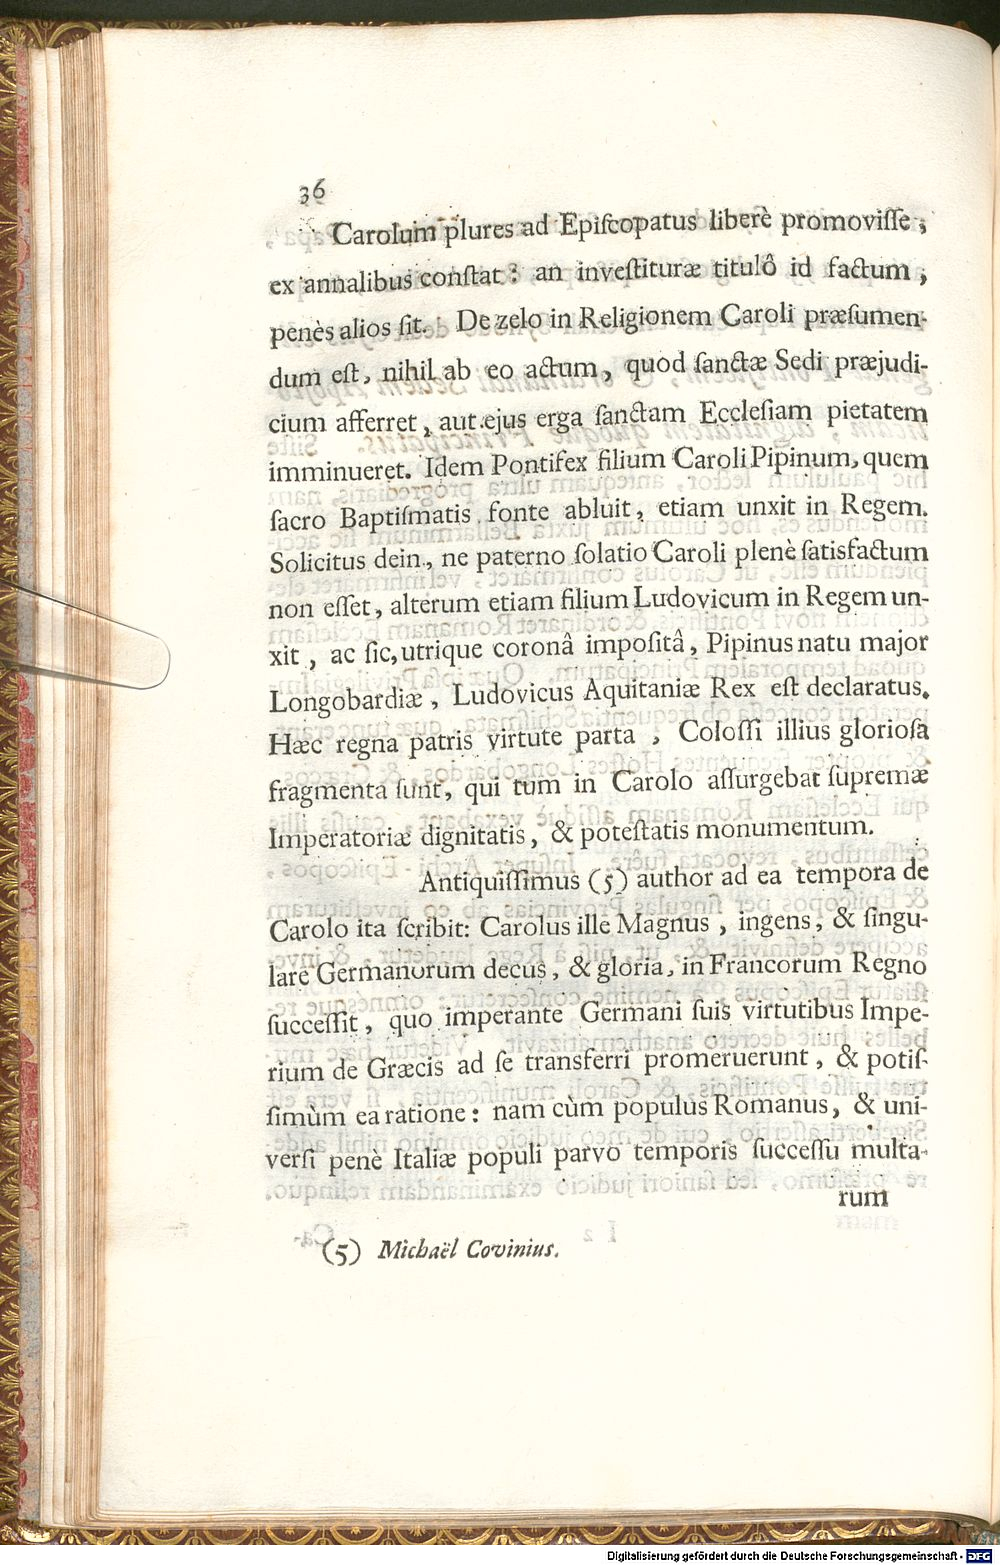 36
Carolum plures ad Epiſcopatus liberè promoviſſe,
ex annalibus conſtat: an inveſtituræ titulô id factum,
penès alios ſit. De zelo in Religionem Caroli præſumen-
dum eſt, nihil ab eo actum, quod ſanctæ Sedi præjudi-
cium afferret, aut ejus erga ſanctam Eccleſiam pietatem
imminueret. Idem Pontifex filium Caroli Pipinum, quem
ſacro Baptiſmatis fonte abluit, etiam unxit in Regem.
Solicitus dein, ne paterno ſolatio Caroli plenè ſatisfactum
non eſſet, alterum etiam filium Ludovicum in Regem un-
xit, ac ſic, utrique coronâ impoſitâ, Pipinus natu major
Longobardiæ, Ludovicus Aquitaniæ Rex eſt declaratus.
Hæc regna patris virtute parta, Coloſſi illius glorioſa
fragmenta ſunt, qui tum in Carolo aſſurgebat ſupremæ
Imperatoriæ dignitatis, & poteſtatis monumentum.
Antiquiſſimus (5) author ad ea tempora de
Carolo ita ſcribit: Carolus ille Magnus, ingens, & ſingu-
lare Germanorum decus, & gloria, in Francorum Regno
ſucceſſit, quo imperante Germani ſuis virtutibus Impe-
rium de Græcis ad ſe transferri promeruerunt, & potiſ-
ſimùm ea ratione: nam cùm populus Romanus, & uni-
verſi penè Italiæ populi parvo temporis ſucceſſu multa-
rum
(5) Michaël Covinius.
Digitalisierung gefördert durch die Deutsche Forschungsgemeinschaft - DFG